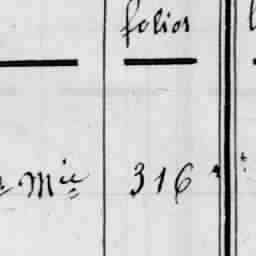 folios
Mie 316